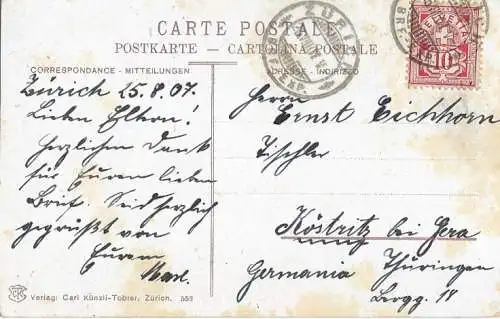 CARTE POSTALE
POSTKARTE — CARTOLINA POSTALE
CORRESPONDANCE - MITTEILUNGEN
ADRESSE - INDIRIZZO
Zürich 25.8.07.
Lieben Eltern!
Herzlichen Dank
für Euren lieben
Brief. Seid herzlich
gegrüßt von
Eurem
Herrn
Ernst Eichhorn
Tischler
Köstritz bei Gera
Germania Thüringen
18
ZÜRICH
HELVETIA
10
Verlag: Carl Künzli-Tobler, Zürich. 553